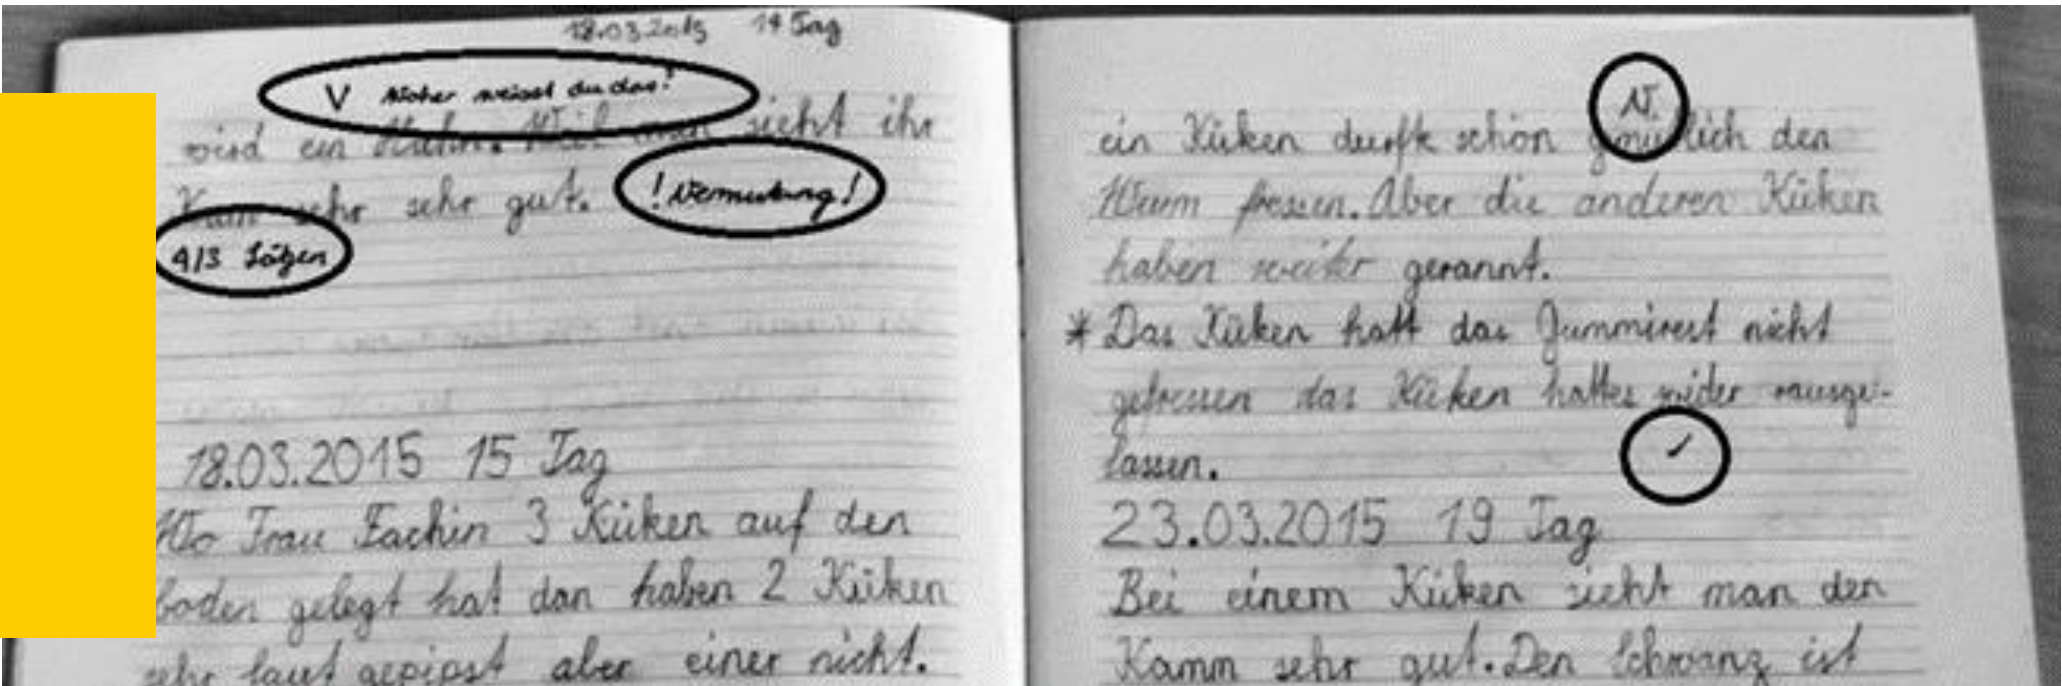 18.03.2015 14 Tag
V Woher weisst du das?
wird ein Hahn. Weil man sieht ihr
Kam sehr sehr gut. ! Vermutung !
4/3 Sätzen
18.03.2015 15 Tag
Wo Frau Fachin 3 Küken auf den
boden gelegt hat dan haben 2 Küken
sehr laut gepipst aber einer nicht.
N.
ein Küken durfte schön gmütlich den
Wurm fressen. Aber die anderen Küken
haben weiter gerannt.
* Das Küken hatt das Gummirest nicht
gefressen das Küken hattes wider rausge-
lassen.
✓
23.03.2015 19 Tag
Bei einem Küken sieht man den
Kamm sehr gut. Den Schwanz ist